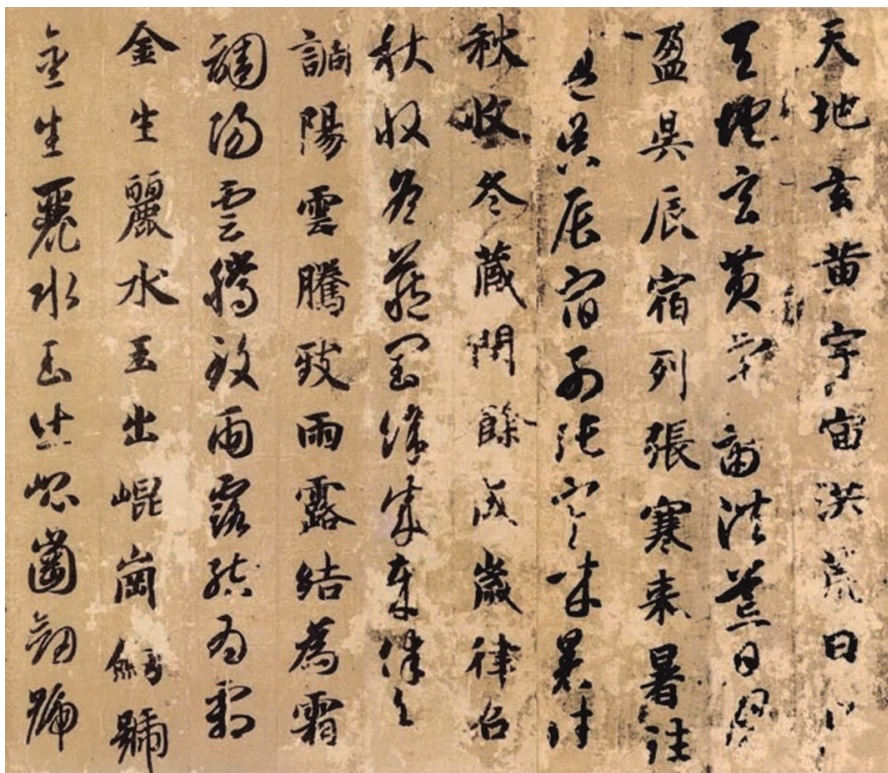 天地玄黄宇宙洪荒日
天地玄黄宇宙洪荒日月
盈昃辰宿列張寒来暑往
盈昃辰宿列張寒来暑往
秋收冬蔵閏餘成歲律召
秋收冬蔵閏餘成歲律召
調陽雲騰致雨露結為霜
調陽雲騰致雨露結為霜
金生麗水玉出崐崗劍號
金生麗水玉出崐崗劍號